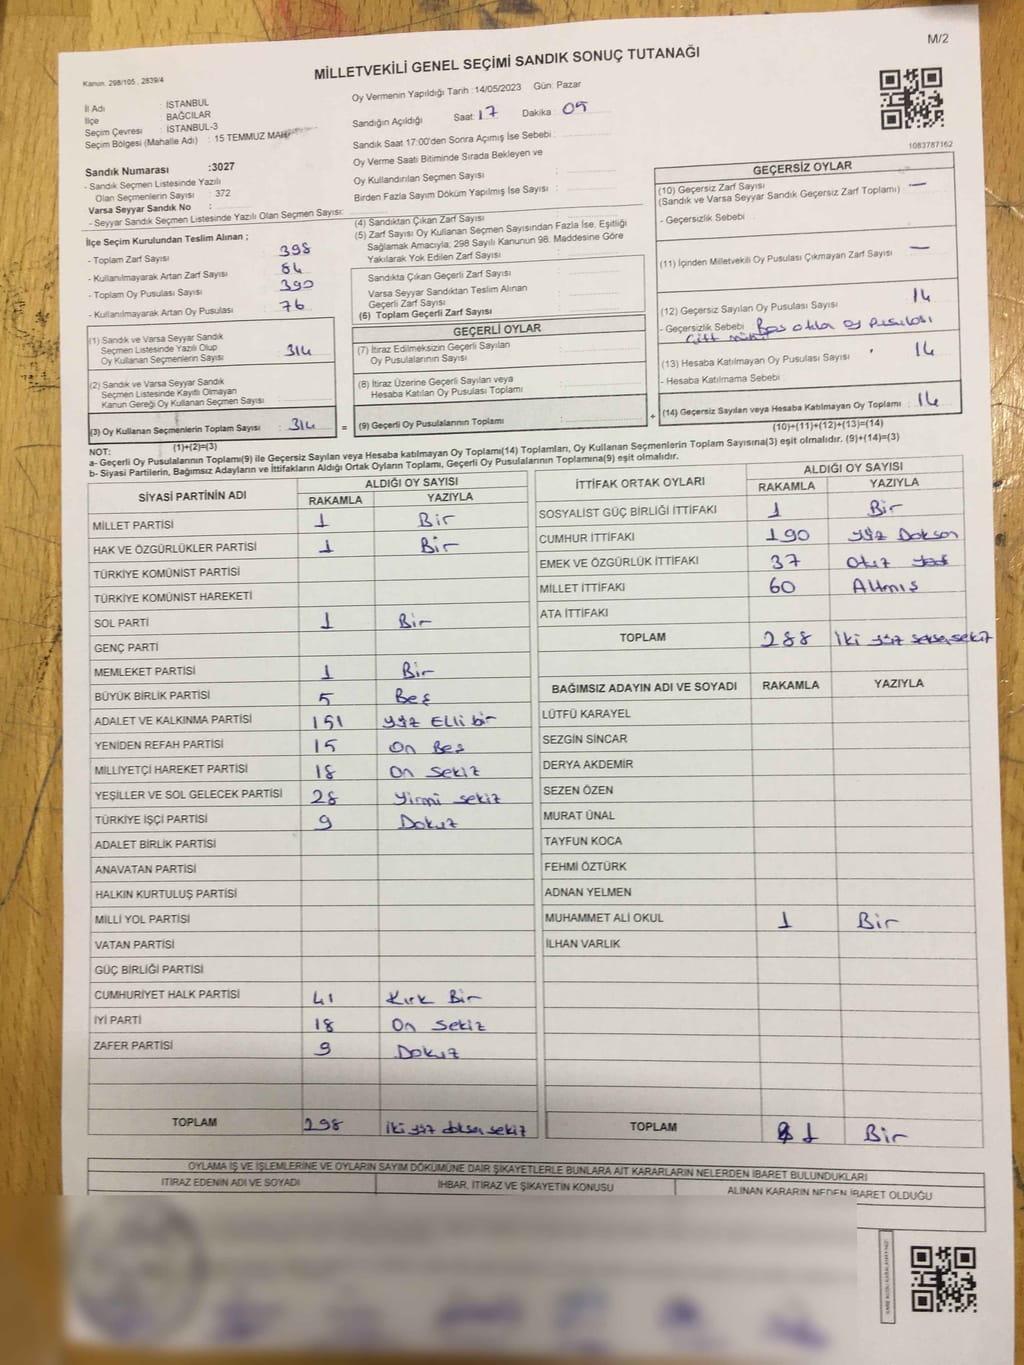 M/2
Kanun. 298/105 , 2839/4
MİLLETVEKİLİ GENEL SEÇİMİ SANDIK SONUÇ TUTANAĞI
İl Adı : İSTANBUL
İlçe : BAĞCILAR
Seçim Çevresi : İSTANBUL-3
Seçim Bölgesi (Mahalle Adı) : 15 TEMMUZ MAH
Sandık Numarası :3027
- Sandık Seçmen Listesinde Yazılı
Olan Seçmenlerin Sayısı : 372
Varsa Seyyar Sandık No :
- Seyyar Sandık Seçmen Listesinde Yazılı Olan Seçmen Sayısı:
İlçe Seçim Kurulundan Teslim Alınan ;
- Toplam Zarf Sayısı : 398
- Kullanılmayarak Artan Zarf Sayısı : 84
- Toplam Oy Pusulası Sayısı : 390
- Kullanılmayarak Artan Oy Pusulası : 76
(1) Sandık ve Varsa Seyyar Sandık
Seçmen Listesinde Yazılı Olup
Oy Kullanan Seçmenlerin Sayısı : 314
(2) Sandık ve Varsa Seyyar Sandık
Seçmen Listesinde Kayıtlı Olmayan
Kanun Gereği Oy Kullanan Seçmen Sayısı :
(3) Oy Kullanan Seçmenlerin Toplam Sayısı : 314
(1)+(2)=(3)
Oy Vermenin Yapıldığı Tarih :14/05/2023 Gün: Pazar
Sandığın Açıldığı Saat: 17 Dakika : 05
Sandık Saat 17:00'den Sonra Açımış İse Sebebi :
Oy Verme Saati Bitiminde Sırada Bekleyen ve
Oy Kullandırılan Seçmen Sayısı :
Birden Fazla Sayım Döküm Yapılmış İse Sayısı :
(4) Sandıktan Çıkan Zarf Sayısı :
(5) Zarf Sayısı Oy Kullanan Seçmen Sayısından Fazla İse, Eşitliği
Sağlamak Amacıyla, 298 Sayılı Kanunun 98. Maddesine Göre
Yakılarak Yok Edilen Zarf Sayısı :
Sandıkta Çıkan Geçerli Zarf Sayısı :
Varsa Seyyar Sandıktan Teslim Alınan
Geçerli Zarf Sayısı :
(6) Toplam Geçerli Zarf Sayısı :
GEÇERLİ OYLAR
(7) İtiraz Edilmeksizin Geçerli Sayılan
Oy Pusulalarının Sayısı :
(8) İtiraz Üzerine Geçerli Sayılan veya
Hesaba Katılan Oy Pusulası Toplamı :
= (9) Geçerli Oy Pusulalarının Toplamı : +
1083787162
GEÇERSİZ OYLAR
(10) Geçersiz Zarf Sayısı
(Sandık ve Varsa Seyyar Sandık Geçersiz Zarf Toplamı) : —
- Geçersizlik Sebebi :
(11) İçinden Milletvekili Oy Pusulası Çıkmayan Zarf Sayısı : —
(12) Geçersiz Sayılan Oy Pusulası Sayısı : 14
- Geçersizlik Sebebi : Boş atılan oy pusulası
Çift
(13) Hesaba Katılmayan Oy Pusulası Sayısı : 14
- Hesaba Katılmama Sebebi :
(14) Geçersiz Sayılan veya Hesaba Katılmayan Oy Toplamı : 14
(10)+(11)+(12)+(13)=(14)
NOT:
a- Geçerli Oy Pusulalarının Toplamı(9) ile Geçersiz Sayılan veya Hesaba katılmayan Oy Toplamı(14) Toplamları, Oy Kullanan Seçmenlerin Toplam Sayısına(3) eşit olmalıdır. (9)+(14)=(3)
b- Siyasi Partilerin, Bağımsız Adayların ve İttifakların Aldığı Ortak Oyların Toplamı, Geçerli Oy Pusulalarının Toplamına(9) eşit olmalıdır.
SİYASİ PARTİNİN ADI ALDIĞI OY SAYISI
RAKAMLA YAZIYLA
MİLLET PARTİSİ 1 Bir
HAK VE ÖZGÜRLÜKLER PARTİSİ 1 Bir
TÜRKİYE KOMÜNİST PARTİSİ
TÜRKİYE KOMÜNİST HAREKETİ
SOL PARTİ 1 Bir
GENÇ PARTİ
MEMLEKET PARTİSİ 1 Bir
BÜYÜK BİRLİK PARTİSİ 5 Beş
ADALET VE KALKINMA PARTİSİ 151 Yüz Elli bir
YENİDEN REFAH PARTİSİ 15 On Beş
MİLLİYETÇİ HAREKET PARTİSİ 18 On sekiz
YEŞİLLER VE SOL GELECEK PARTİSİ 28 Yirmi sekiz
TÜRKİYE İŞÇİ PARTİSİ 9 Dokuz
ADALET BİRLİK PARTİSİ
ANAVATAN PARTİSİ
HALKIN KURTULUŞ PARTİSİ
MİLLİ YOL PARTİSİ
VATAN PARTİSİ
GÜÇ BİRLİĞİ PARTİSİ
CUMHURİYET HALK PARTİSİ 41 Kırk Bir
İYİ PARTİ 18 On sekiz
ZAFER PARTİSİ 9 Dokuz
TOPLAM 298 iki yüz doksan sekiz
İTTİFAK ORTAK OYLARI ALDIĞI OY SAYISI
RAKAMLA YAZIYLA
SOSYALİST GÜÇ BİRLİĞİ İTTİFAKI 1 Bir
CUMHUR İTTİFAKI 190 Yüz Doksan
EMEK VE ÖZGÜRLÜK İTTİFAKI 37 Otuz
MİLLET İTTİFAKI 60 Altmış
ATA İTTİFAKI
TOPLAM 288 İki yüz seksen sekiz
BAĞIMSIZ ADAYIN ADI VE SOYADI RAKAMLA YAZIYLA
LÜTFÜ KARAYEL
SEZGİN SİNCAR
DERYA AKDEMİR
SEZEN ÖZEN
MURAT ÜNAL
TAYFUN KOCA
FEHMİ ÖZTÜRK
ADNAN YELMEN
MUHAMMET ALİ OKUL 1 Bir
İLHAN VARLIK
TOPLAM 1 Bir
OYLAMA İŞ VE İŞLEMLERİNE VE OYLARIN SAYIM DÖKÜMÜNE DAİR ŞİKAYETLERLE BUNLARA AİT KARARLARIN NELERDEN İBARET BULUNDUKLARI
İTİRAZ EDENİN ADI VE SOYADI İHBAR, İTİRAZ VE ŞİKAYETİN KONUSU ALINAN KARARIN NEDEN İBARET OLDUĞU